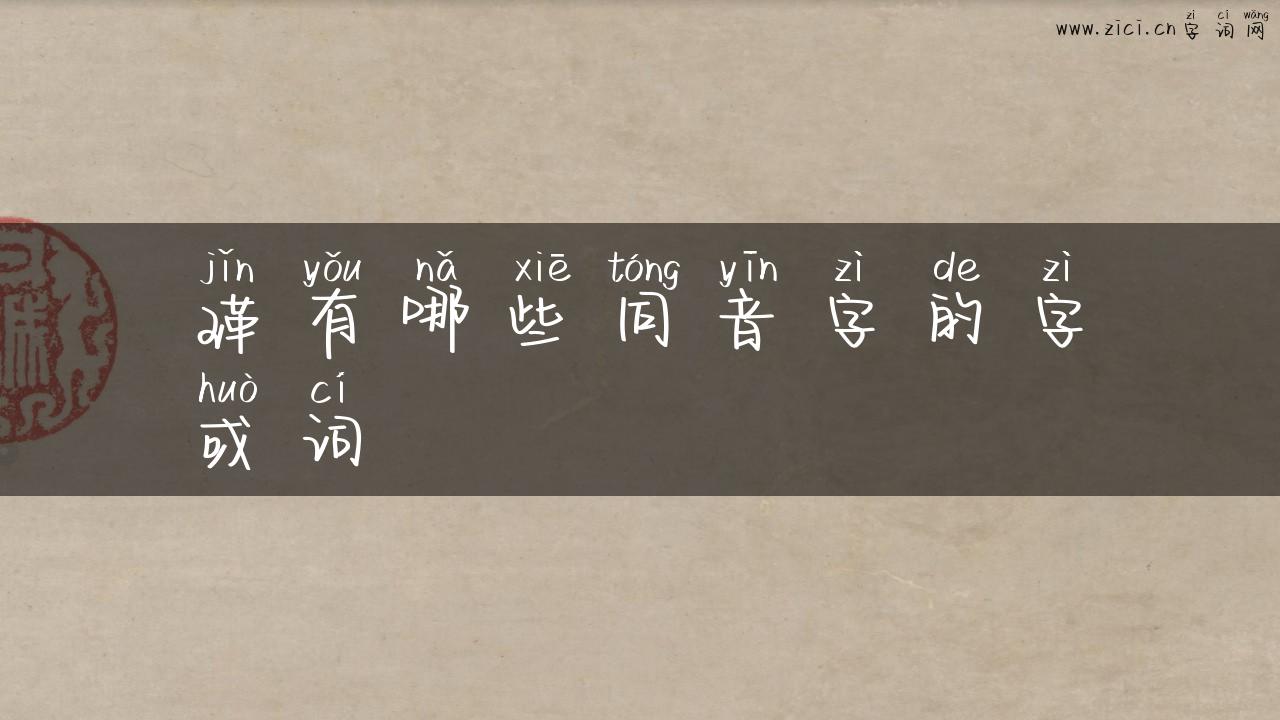 www.zici.cn 字词网
zì cí wǎng
jǐn yǒu nǎ xiē tóng yīn zì de zì
谨有哪些同音字的字
huò cí
或词